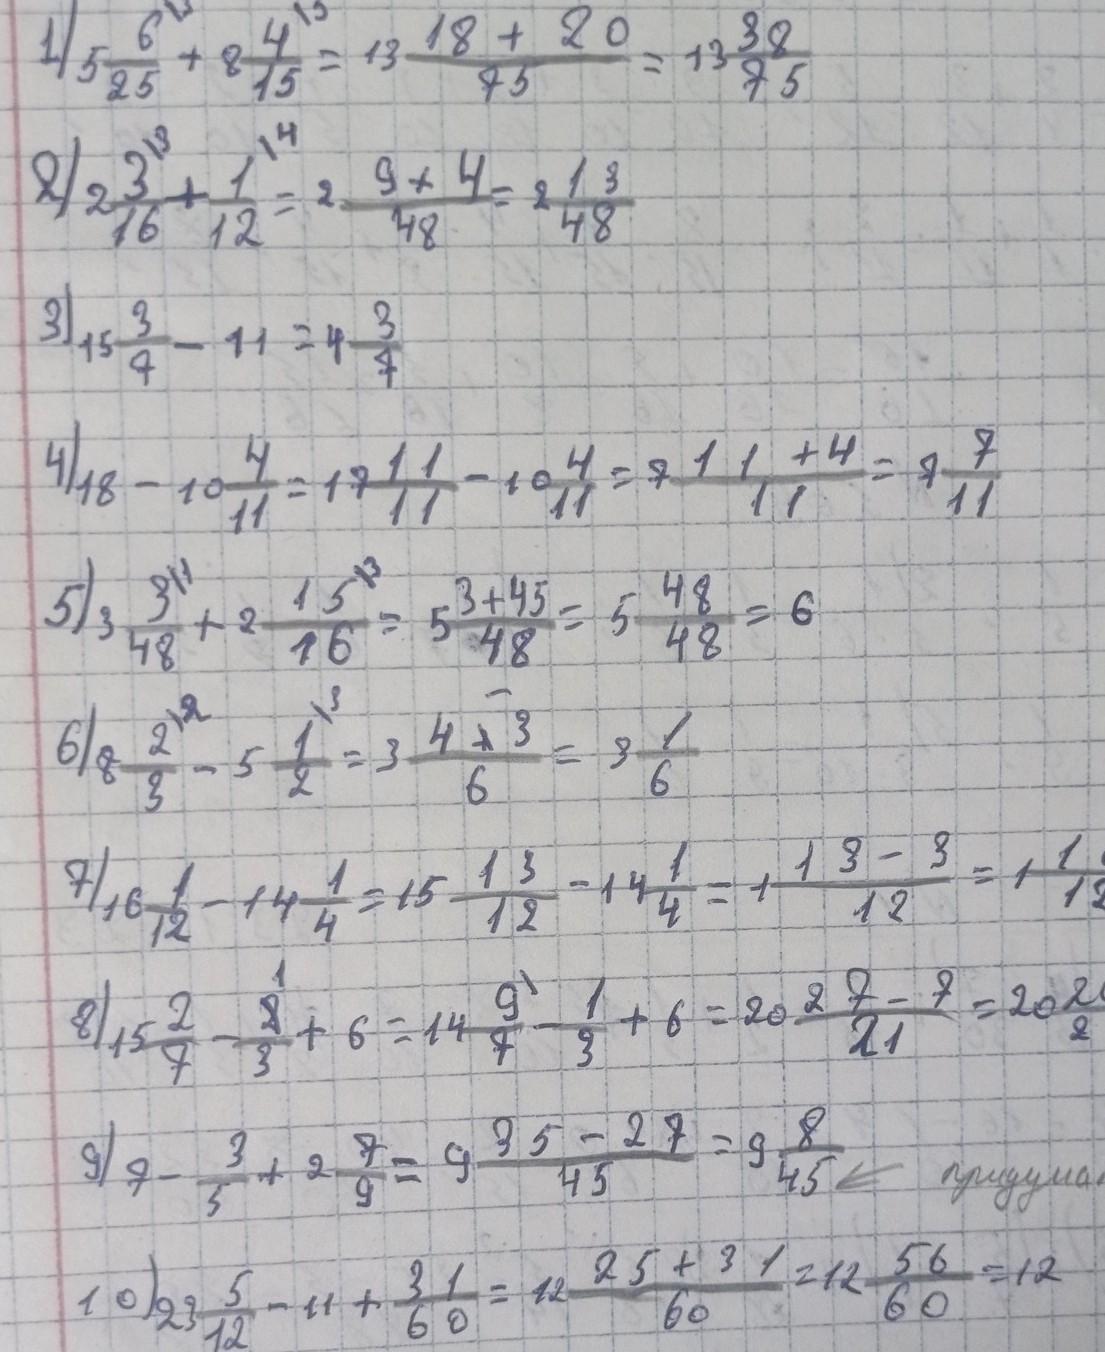 1) 5 6/25 + 8 4/15 = 13 (18 + 20)/75 = 13 38/75
2) 2 3\3/16 + 1\4/12 = 2 (9 + 4)/48 = 2 13/48
3) 15 3/7 - 11 = 4 3/7
4) 18 - 10 4/11 = 17 11/11 - 10 4/11 = 7 (11 + 4)/11 = 7 7/11
5) 3 3\1/48 + 2 15\3/16 = 5 (3+45)/48 = 5 48/48 = 6
6) 8 2\2/3 - 5 1\3/2 = 3 (4 - 3)/6 = 3 1/6
7) 16 1/12 - 14 1/4 = 15 13/12 - 14 1/4 = 1 (13 - 3)/12 = 1
8) 15 2/7 - 1/3 + 6 = 14 9/7 - 1/3 + 6 = 20 (27 - 7)/21 = 20
9) 7 - 3/5 + 2 7/9 = 9 (35 - 27)/45 = 9 8/45
10) 23 5/12 - 11 + 31/60 = 12 (25 + 31)/60 = 12 56/60 = 12